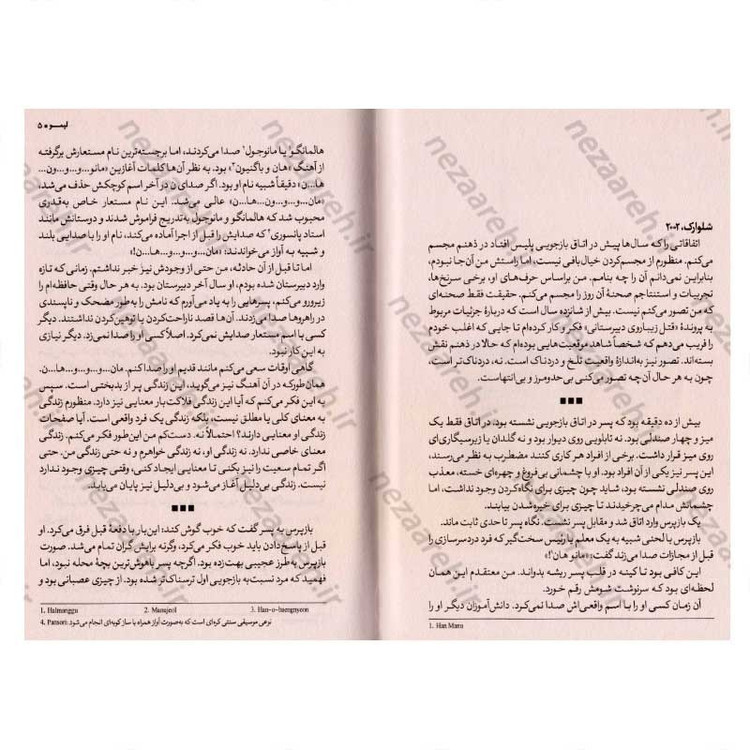 شلوارک، ۲۰۰۲
اتفاقاتی را که سال‌ها پیش در اتاق بازجویی پلیس افتاد در ذهنم مجسم
می‌کنم. منظورم از مجسم‌کردن خیال‌بافی نیست، اما راستش من آن‌جا نبودم،
بنابراین نمی‌دانم آن را چه بنامم. من براساس حرف‌های او، برخی سرنخ‌ها،
تجربیات و استنتاجم صحنهٔ آن روز را مجسم می‌کنم. حقیقت فقط صحنه‌ای
که من تصور می‌کنم نیست. بیش از شانزده سال است که دربارهٔ جزئیات مربوط
به پروندهٔ «قتل زیباروی دبیرستانی» فکر و کار کرده‌ام تا جایی که اغلب خودم
را فریب می‌دهم که شخصاً شاهد موقعیت‌هایی بوده‌ام که حالا در ذهنم نقش
بسته‌اند. تصور نیز به‌اندازهٔ واقعیت تلخ و دردناک است. نه، دردناک‌تر است،
چون به هر حال آن چه تصور می‌کنی بی‌حدومرز و بی‌انتهاست.
■■■
بیش از ده دقیقه بود که پسر در اتاق بازجویی نشسته بود. در اتاق فقط یک
میز و چهار صندلی بود. نه تابلویی روی دیوار بود و نه گلدان یا زیرسیگاری‌ای
روی میز قرار داشت. برخی از افراد هر کاری کنند مضطرب به نظر می‌رسند،
این پسر نیز یکی از آن افراد بود. او با چشمانی بی‌فروغ و چهره‌ای خسته، معذب
روی صندلی نشسته بود، شاید چون چیزی برای نگاه‌کردن وجود نداشت، اما
چشمانش مدام می‌چرخیدند تا چیزی برای خیره‌شدن بیابند.
یک بازپرس وارد اتاق شد و مقابل پسر نشست. نگاه پسر تا حدی ثابت ماند.
بازپرس با لحنی شبیه به یک معلم یا رئیس سخت‌گیر که فرد دردسرسازی را
قبل از مجازات صدا می‌زند گفت: «مانو هان¹!»
این کافی بود تا کینه در قلب پسر ریشه بدواند. من معتقدم این همان
لحظه‌ای بود که سرنوشت شومش رقم خورد.
آن زمان کسی او را با اسم واقعی‌اش صدا نمی‌کرد. دانش‌آموزان دیگر او را
1. Han Manu
لیمو ● ۵
هالمانگو¹ یا مانوجول² صدا می‌کردند، اما برجسته‌ترین نام مستعارش برگرفته
از آهنگ «هان و باگنیون³» بود. به نظر آن‌ها کلمات آغازین «مانو...و...و...ون...
ها...ن» دقیقاً شبیه نام او بود. اگر صدای ن در آخر اسم کوچکش حذف می‌شد،
«مان...و...و...ون...ها...ن» عالی می‌شد. این نام مستعار خاص به‌قدری
محبوب شد که هالمانگو و مانوجول به‌تدریج فراموش شدند و دوستانش مانند
استاد پانسوری⁴ که صدایش را قبل از اجرا آماده می‌کند، نام او را با صدایی بلند
و شبیه به آواز می‌خواندند: «مان...و...و...و...ها...ن!»
اما تا قبل از آن حادثه، من حتی از وجودش نیز خبر نداشتم. زمانی که تازه
وارد دبیرستان شده بودم، او سال آخر دبیرستان بود. به هر حال وقتی حافظه‌ام را
زیرورو می‌کنم، پسرهایی را به یاد می‌آورم که نامش را به‌طور مضحک و ناپسندی
در راهروها صدا می‌زدند. آن‌ها قصد ناراحت‌کردن یا توهین‌کردن نداشتند. دیگر
کسی با اسم مستعار صدایش نمی‌کرد. اصلاً کسی او را صدا نمی‌زد. دیگر نیازی
به این کار نبود.
گاهی اوقات سعی می‌کنم مانند قدیم او را صدا کنم. مان...و...و...و...ها...ن.
همان‌طورکه در آن آهنگ نیز می‌گوید، این زندگی پر از بدبختی است. سپس
به این فکر می‌کنم که آیا این زندگی فلاکت‌بار معنایی نیز دارد. منظورم زندگی
به معنای کلی یا مطلق نیست، بلکه زندگی یک فرد واقعی است. آیا صفحات
زندگی او معنایی دارند؟ احتمالاً نه. دست‌کم من این‌طور فکر می‌کنم. زندگی
معنای خاصی ندارد. نه زندگی او، نه زندگی خواهرم و نه حتی زندگی من.
اگر تمام سعیت را نیز بکنی تا معنایی ایجاد کنی، وقتی چیزی وجود ندارد
نیست. زندگی بی‌دلیل آغاز می‌شود و بی‌دلیل نیز پایان می‌یابد.
■■■
بازپرس به پسر گفت که خوب گوش کند: این‌بار با دفعهٔ قبل فرق می‌کرد. او
قبل از پاسخ‌دادن باید خوب فکر می‌کرد، وگرنه برایش گران تمام می‌شد. صورت
بازپرس به طرز عجیبی بهت‌زده بود. اگرچه پسر باهوش‌ترین بچهٔ محله نبود، اما
فهمید که مرد نسبت‌به بازجویی اول ترسناک‌تر شده بود. از چیزی عصبانی بود و
1. Halmanggu 2. Manujeol 3. Han-o-baengnyeon
4. Pansori: نوعی موسیقی سنتی کره‌ای است که به‌صورت آواز همراه با ساز کوبه‌ای انجام می‌شود.
nezaareh.ir